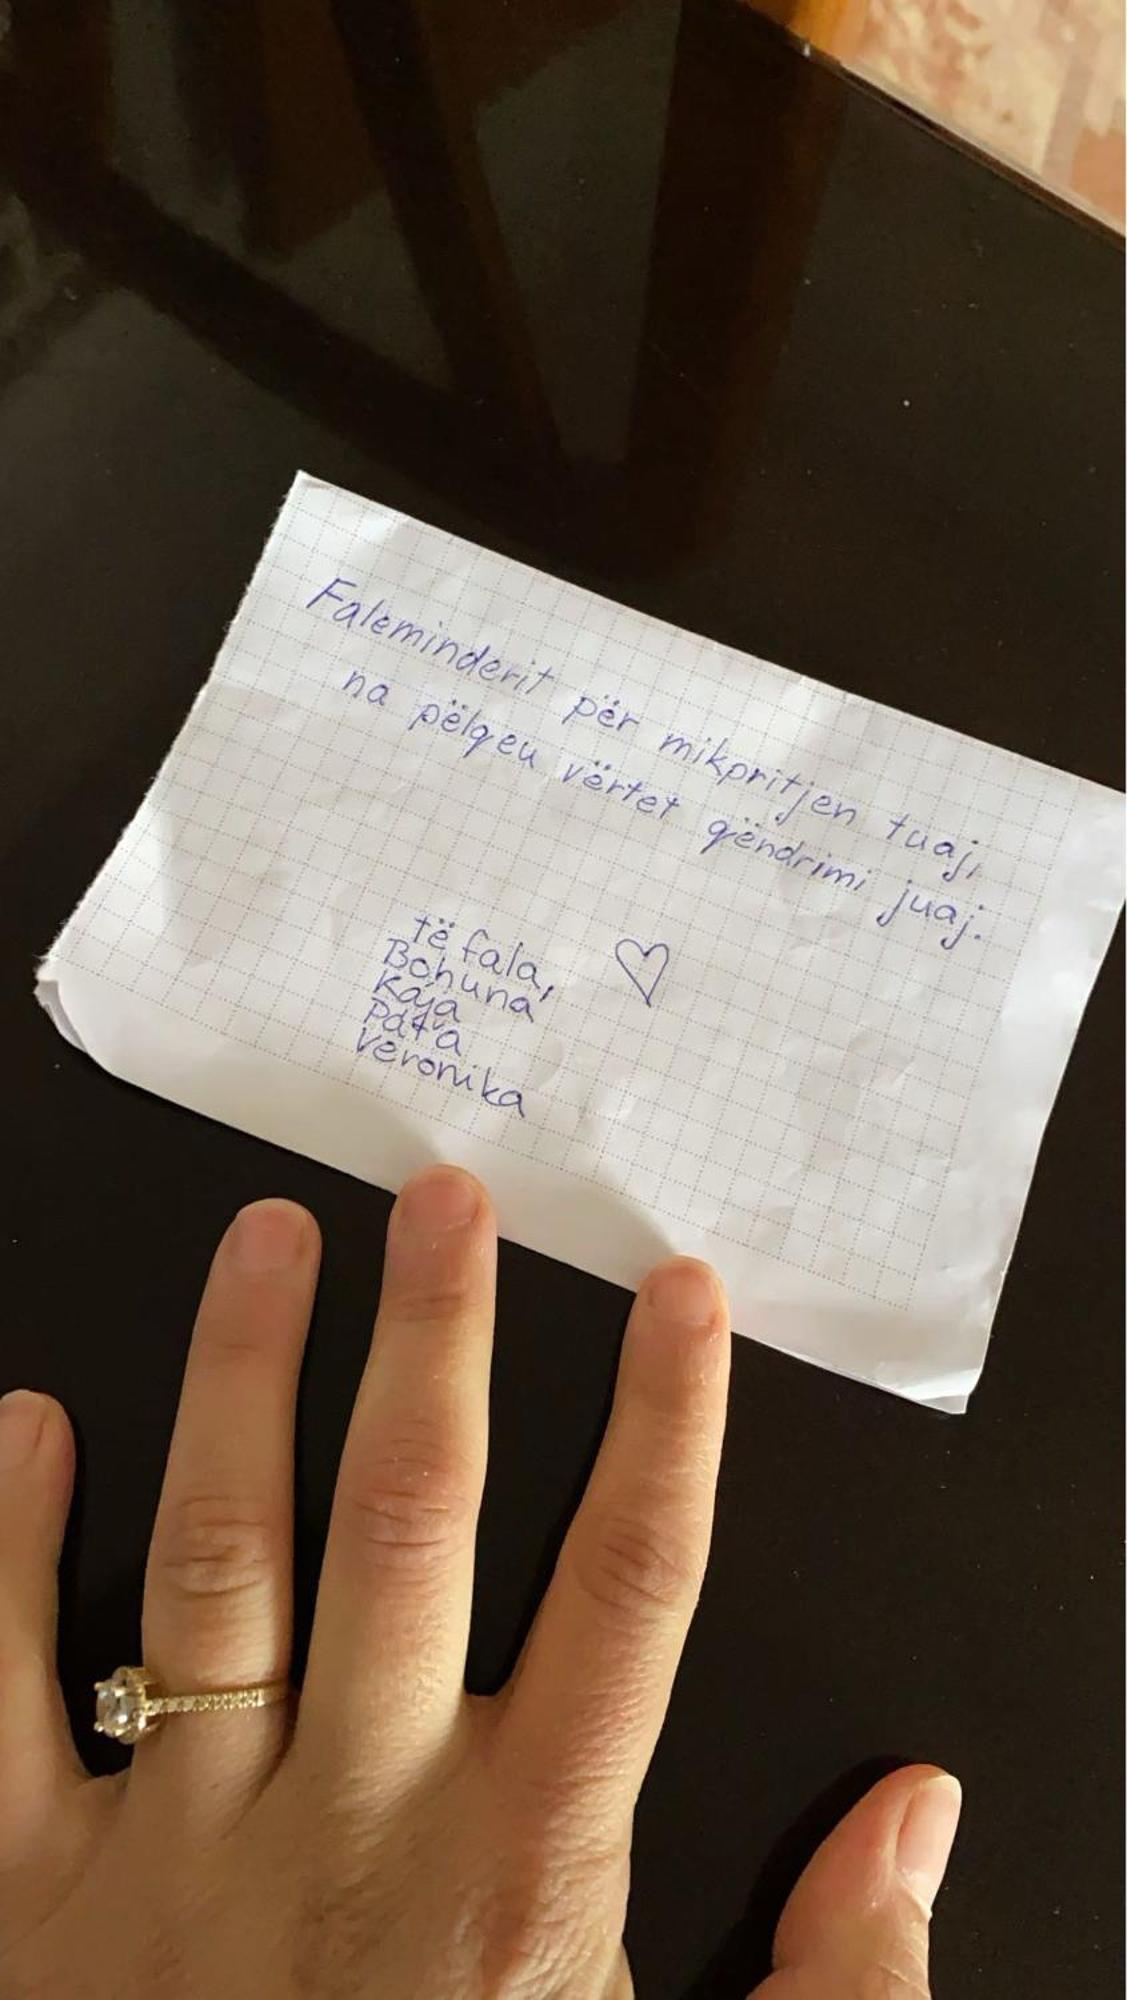 Faleminderit për mikpritjen tuaj,
na pëlqeu vërtet qëndrimi juaj.
të fala,
Bohuna
Kája
Páťa
Veronika